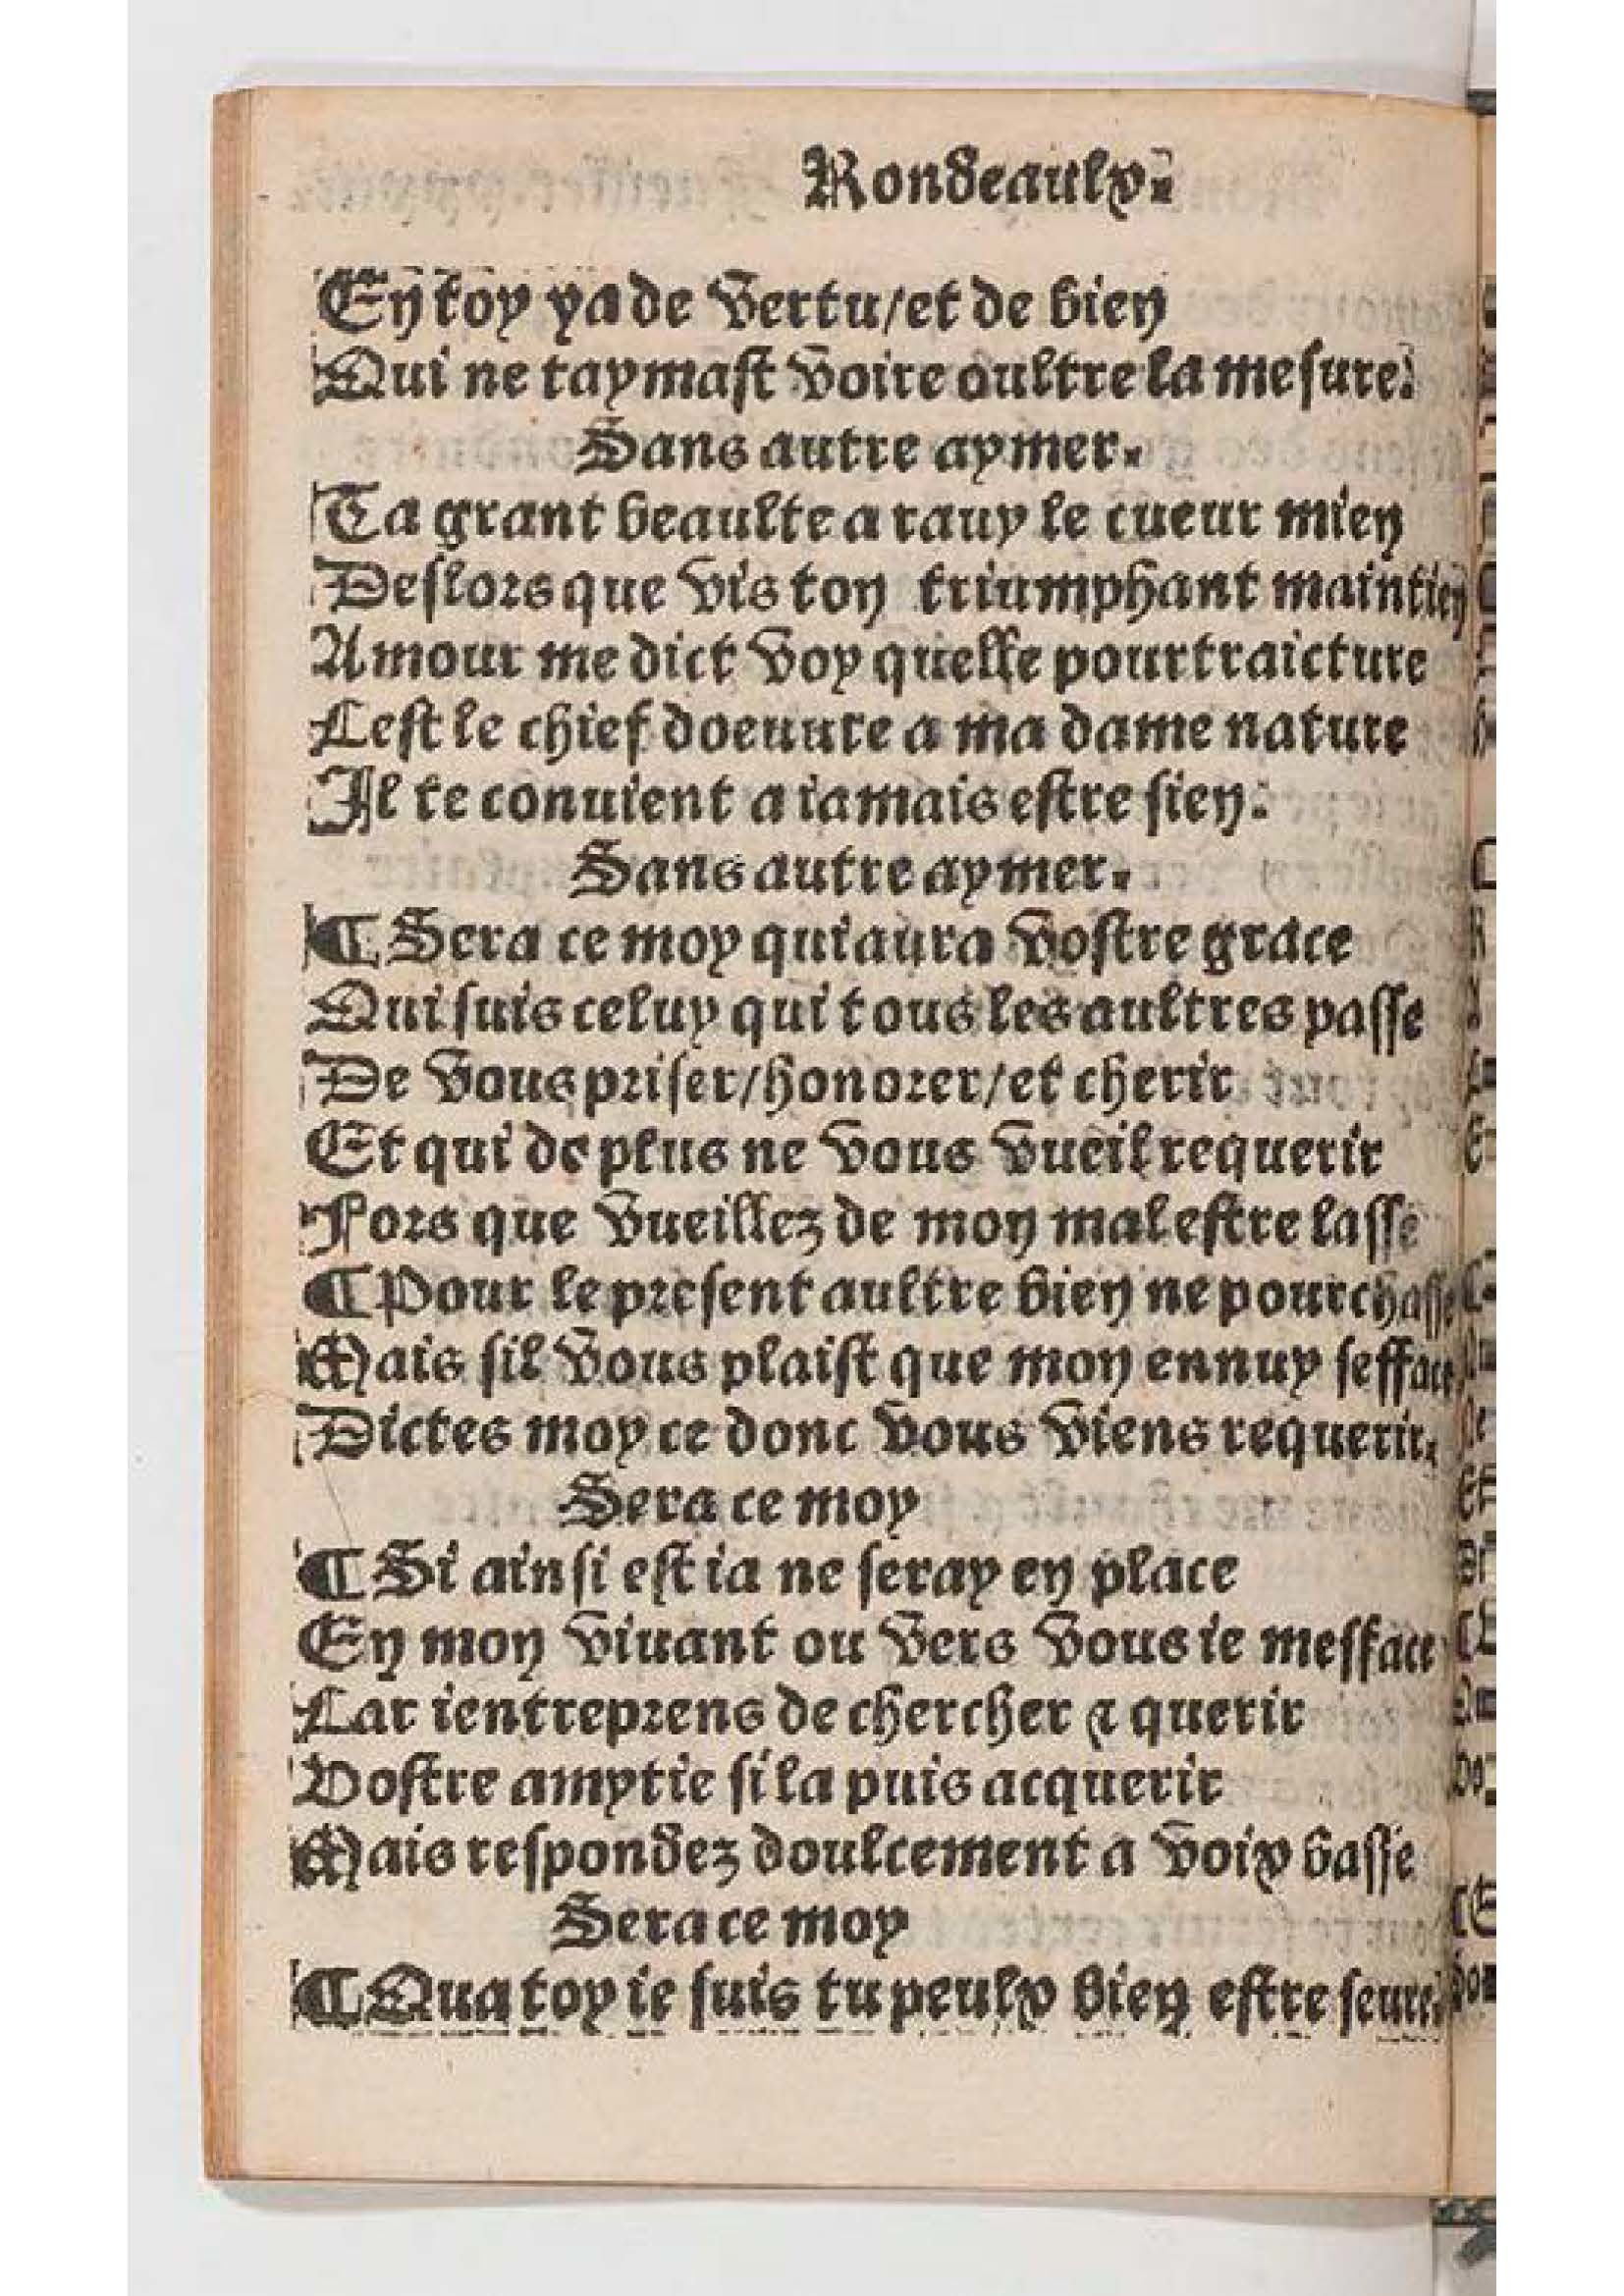 Rondeaulx.
En toy ya de vertu/et de bien
Qui ne taymast voire oultre la mesure.
Sans autre aymer.
Ta grant beaulte a rauy le cueur mien
Deslors que vis ton triumphant maintien
Amour me dict voy quelle pourtraicture
Cest le chief doeuure a ma dame nature
Il te conuient a iamais estre sien.
Sans autre aymer.
¶ Sera ce moy qui aura vostre grace
Qui suis celuy qui tous les aultres passe
De vous priser/honorer/et cherir
Et qui de plus ne vous vueil requerir
Fors que vueillez de mon mal estre lasse
¶ Pour le present aultre bien ne pourchasse
Mais sil vous plaist que mon ennuy sefface
Dictes moy ce donc vous viens requerir.
Sera ce moy
¶ Si ainsi est ia ne seray en place
En mon viuant ou vers vous ie mesface
Car ientreprens de chercher & querir
Vostre amytie si la puis acquerir
Mais respondez doulcement a voix basse
Sera ce moy
¶ Qua toy ie suis tu peulx bien estre seure.